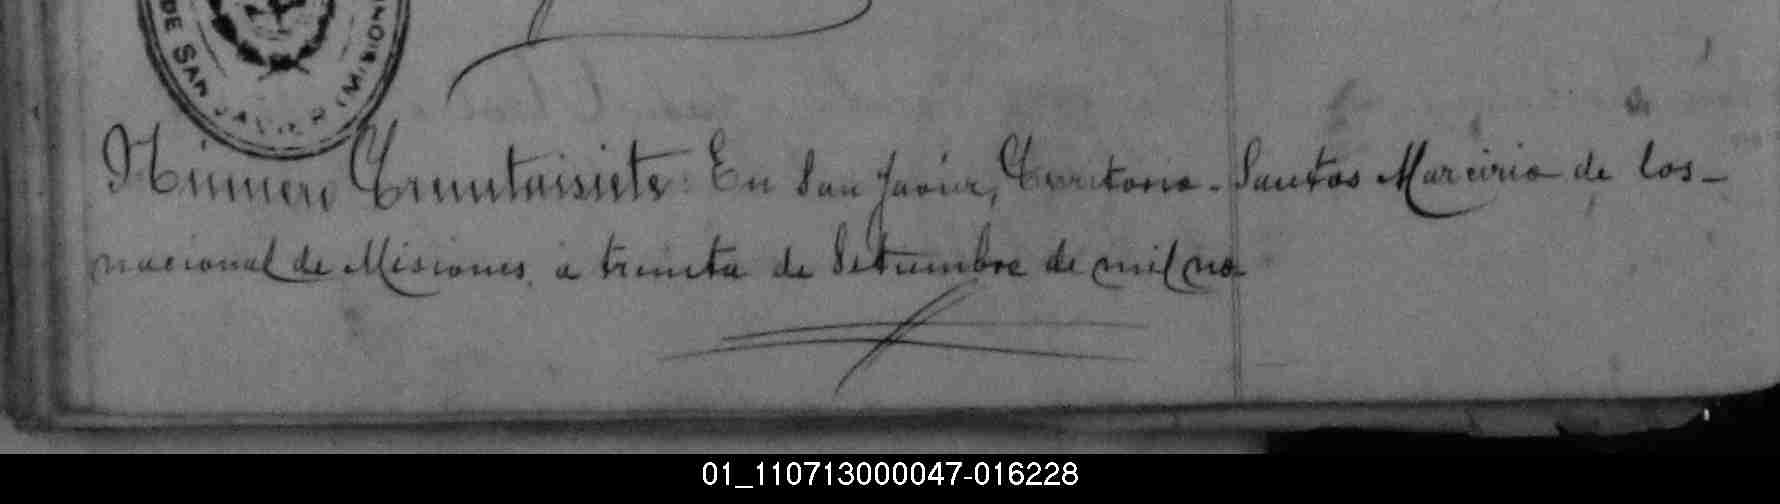 DE SAN JAVIER (MISIONE
Número Treintaisiete: En San Javier, Territorio-
nacional de Misiones, a treinta de Setiembre de mil no-
Santos Marcirio de los-
01_110713000047-016228